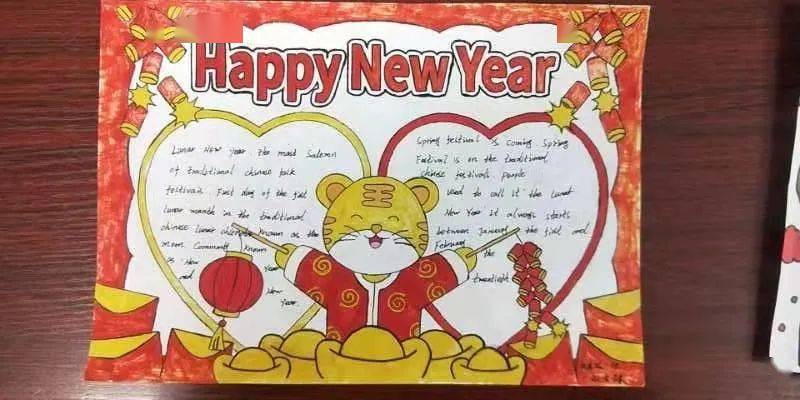 Happy New Year
Lunar New Year The most Solemn
of traditional chinese folk
festivals First day of the first
lunar month in the traditional
chinese lunar known as the
Commonly known
as New Year
and
New
Year.
Spring festival is coming Spring
Festival is on the traditional
chinese festivals people
used to call it the lunar
New Year It always starts
between January the first and
February the